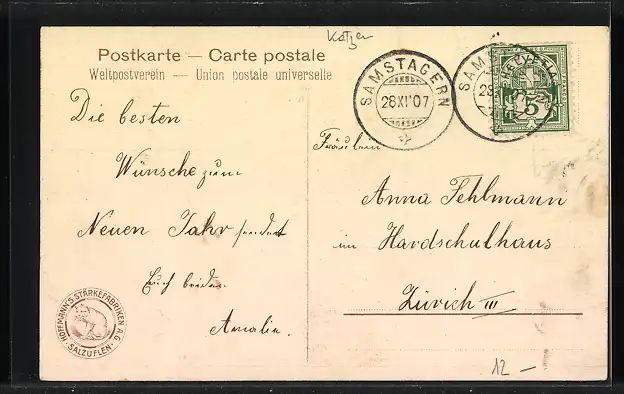 Katzen
Postkarte — Carte postale
Weltpostverein — Union postale universelle
SAMSTAGERN
28 XI 07
SAMSTAGERN
28
HELVETIA
5
Die besten
Wünsche zum
Neuen Jahr sendet
Euch beiden
Amalie.
Fräulein
Anna Fehlmann
im Hardschulhaus
Zürich III
HOFFMANN'S STÄRKEFABRIKEN A.G.
SALZUFLEN
12 —